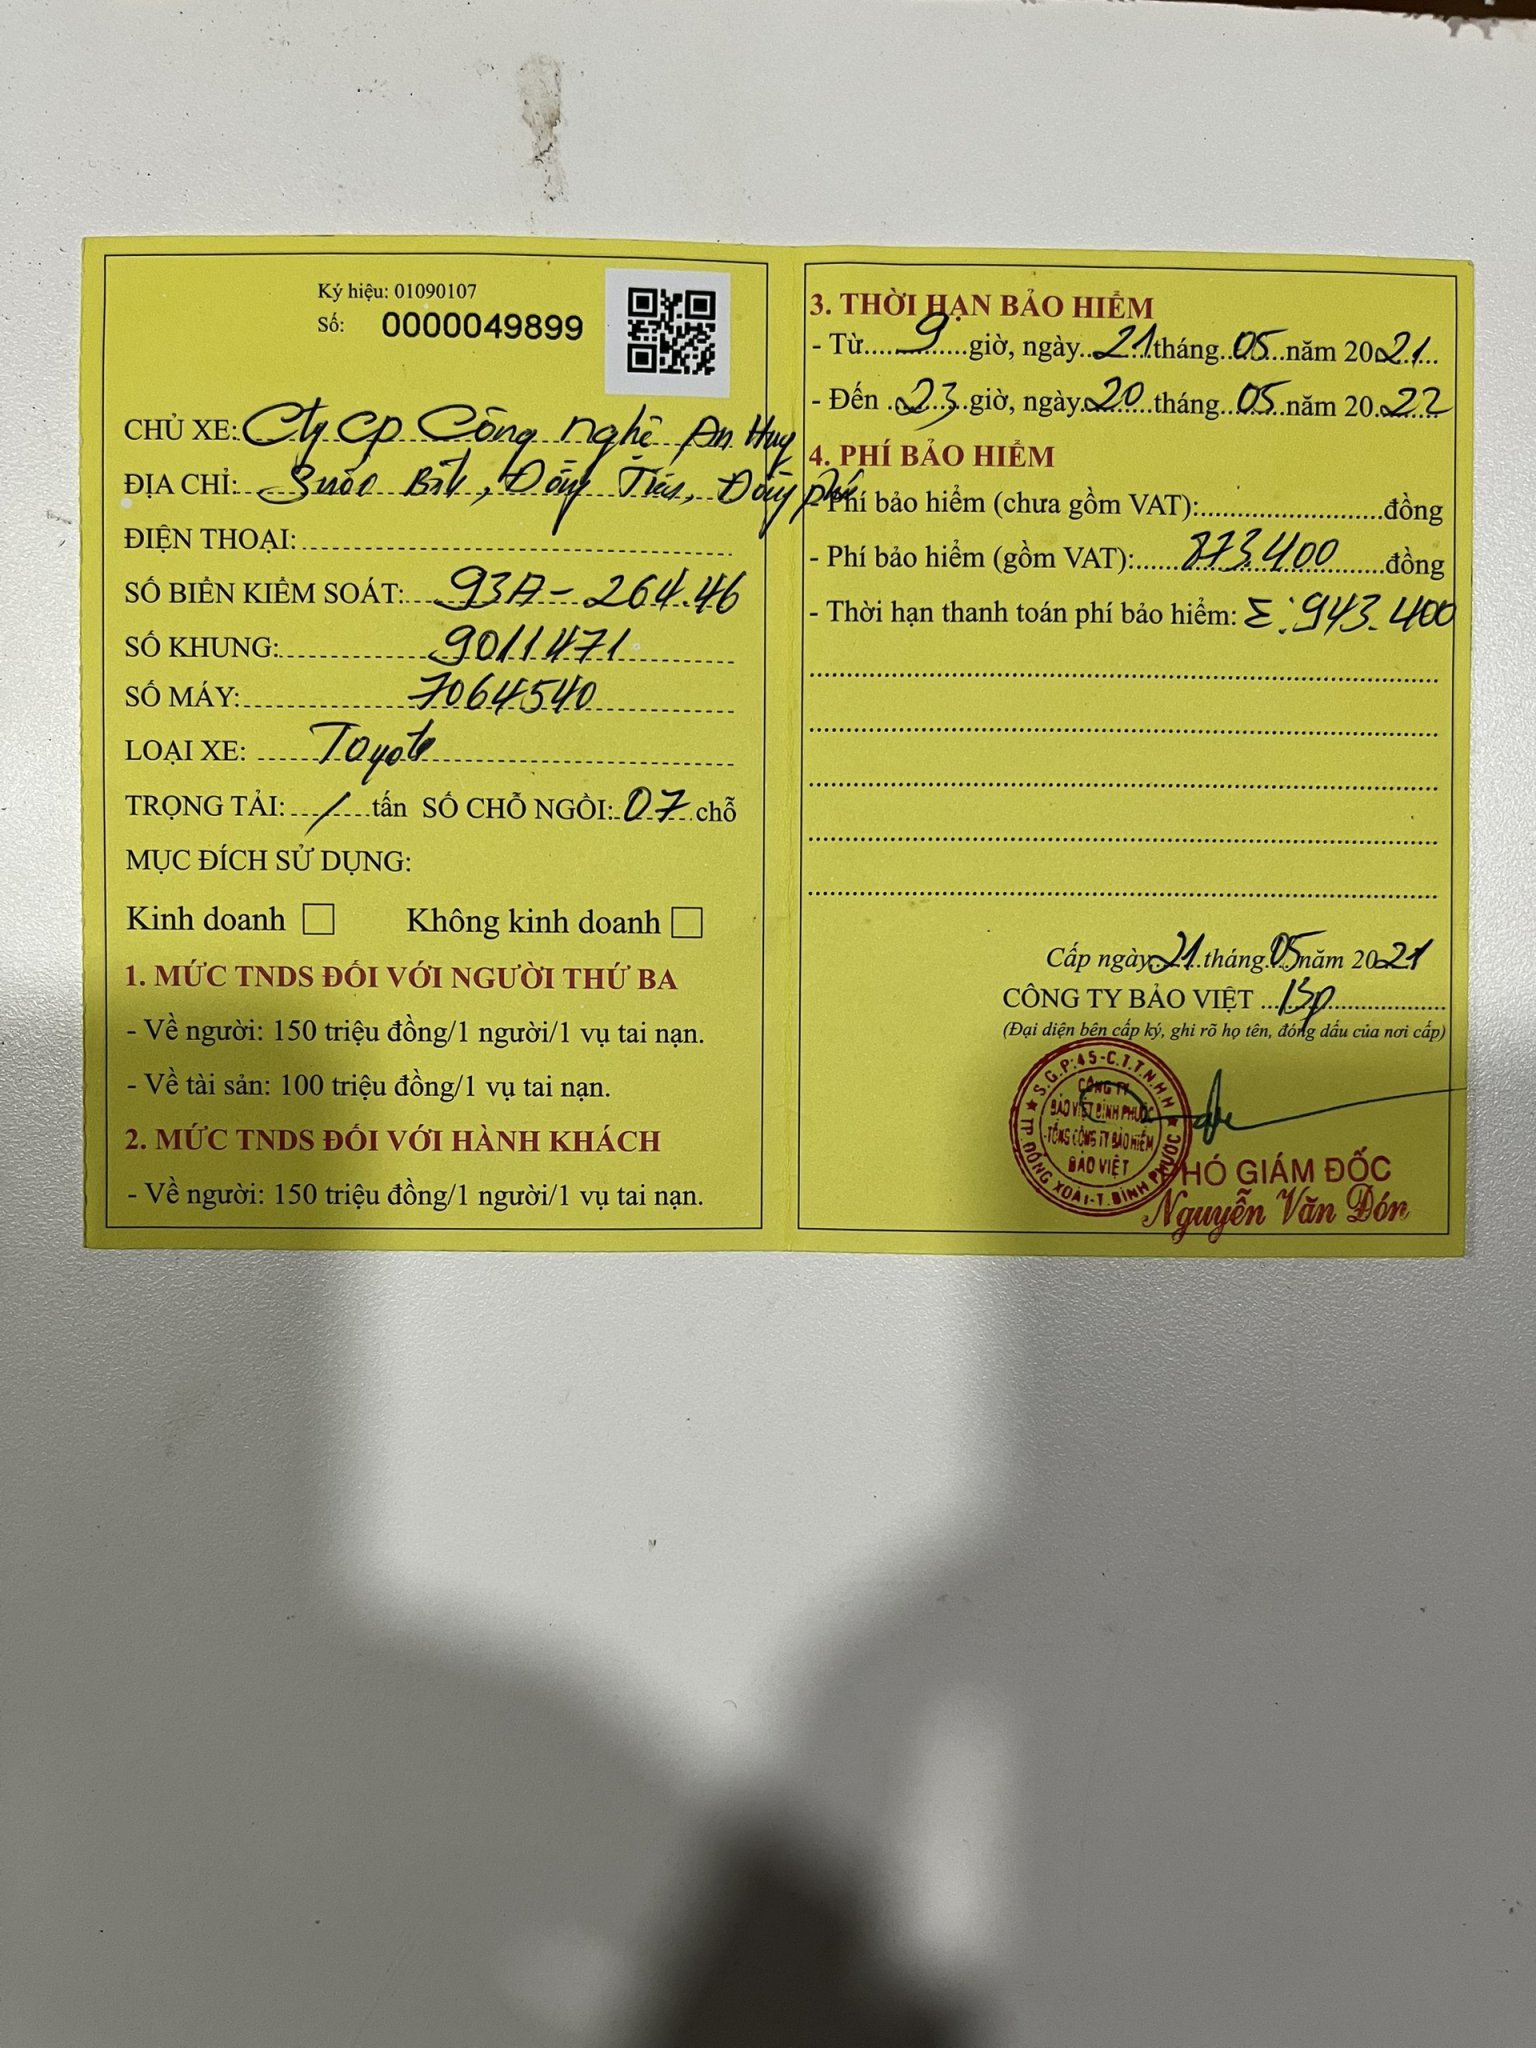 Ký hiệu: 01090107
Số: 0000049899
CHỦ XE: Cty CP Công nghệ An Huy
ĐỊA CHỈ: Suối Bik, Đồng Tiến, Đồng phú
ĐIỆN THOẠI:
SỐ BIỂN KIỂM SOÁT: 93A - 264.46
SỐ KHUNG: 9011471
SỐ MÁY: 7064540
LOẠI XE: Toyota
TRỌNG TẢI: / tấn SỐ CHỖ NGỒI: 07 chỗ
MỤC ĐÍCH SỬ DỤNG:
Kinh doanh Không kinh doanh
1. MỨC TNDS ĐỐI VỚI NGƯỜI THỨ BA
- Về người: 150 triệu đồng/1 người/1 vụ tai nạn.
- Về tài sản: 100 triệu đồng/1 vụ tai nạn.
2. MỨC TNDS ĐỐI VỚI HÀNH KHÁCH
- Về người: 150 triệu đồng/1 người/1 vụ tai nạn.
3. THỜI HẠN BẢO HIỂM
- Từ 9 giờ, ngày 21 tháng 05 năm 2021
- Đến 23 giờ, ngày 20 tháng 05 năm 2022
4. PHÍ BẢO HIỂM
- Phí bảo hiểm (chưa gồm VAT): đồng
- Phí bảo hiểm (gồm VAT): 873.400 đồng
- Thời hạn thanh toán phí bảo hiểm: Σ: 943.400
Cấp ngày 21 tháng 05 năm 2021
CÔNG TY BẢO VIỆT Bp
(Đại diện bên cấp ký, ghi rõ họ tên, đóng dấu của nơi cấp)
S.G.P:45-C.T.T.N.H.H
CÔNG TY
BẢO VIỆT BÌNH PHƯỚC
TỔNG CÔNG TY BẢO HIỂM
BẢO VIỆT
TP. ĐỒNG XOÀI-T. BÌNH PHƯỚC
PHÓ GIÁM ĐỐC
Nguyễn Văn Đón